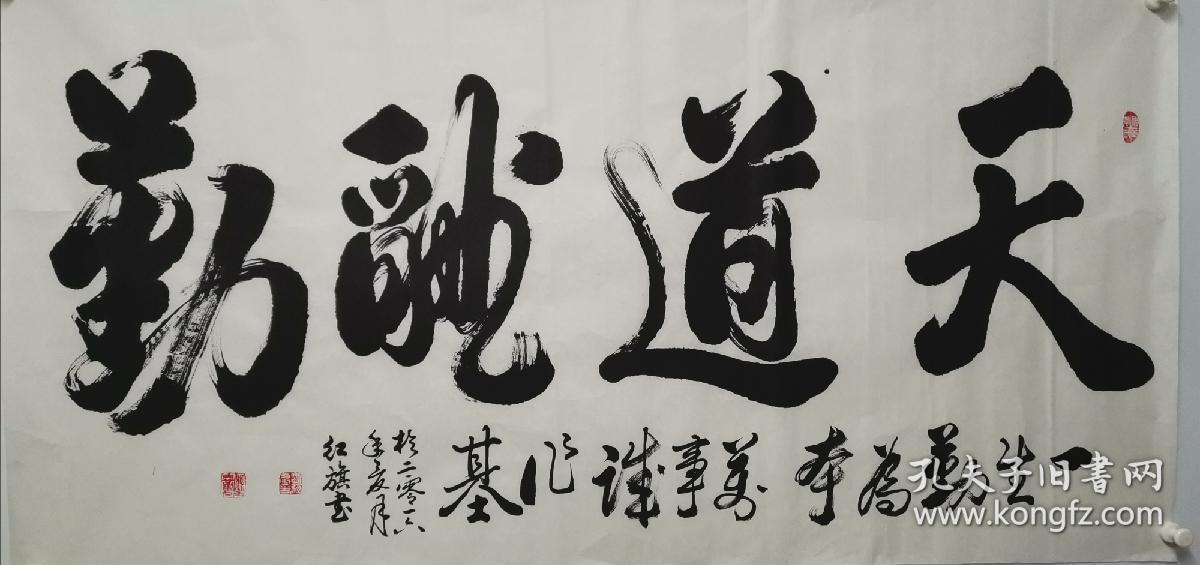 天道酬勤
一生勤為本萬事誠作基
於二零一六
年夏月
紅旗书
孔夫子旧书网
www.kongfz.com